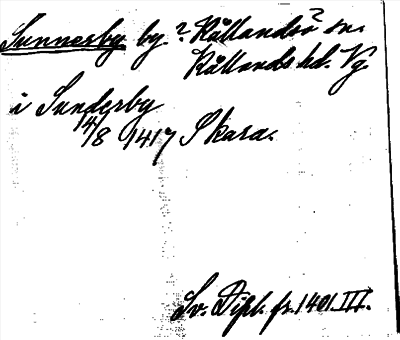 Sunnerby by ? Kållandsö ? sn.
Kållands hd. Vg.
i Sunderby
14/8 1417 Skara.
Sv. Dipl. fr. 1401. III.